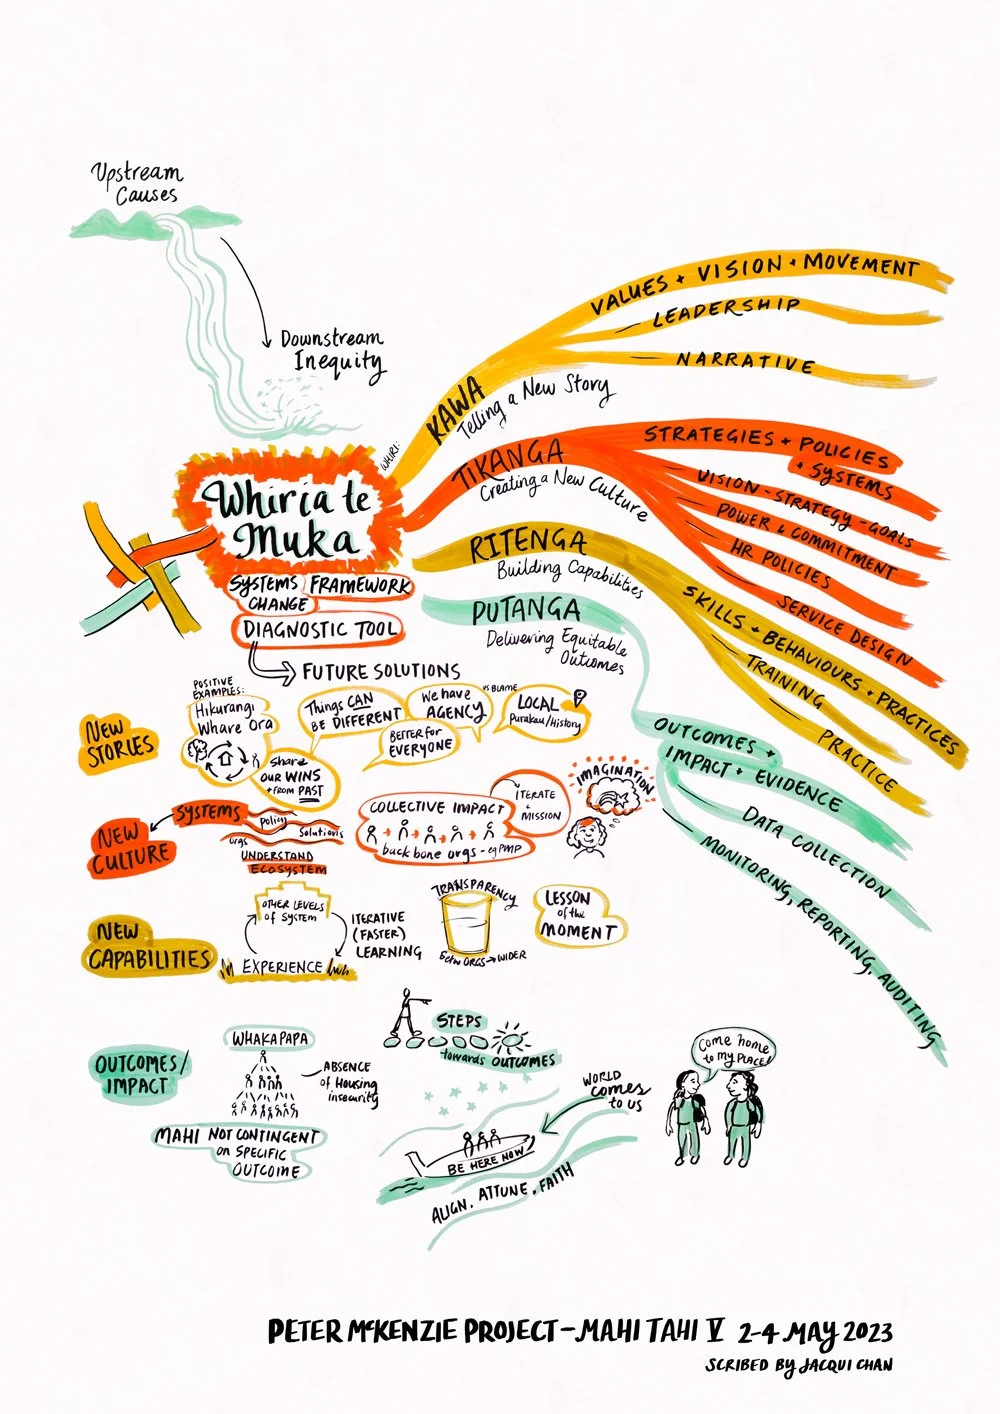 Upstream
Causes
Downstream
Inequity
Whiria te
Muka
SYSTEMS FRAMEWORK
CHANGE
DIAGNOSTIC TOOL
FUTURE SOLUTIONS
WHIRI:
KAWA
Telling a New Story
VALUES + VISION + MOVEMENT
LEADERSHIP
NARRATIVE
TIKANGA
Creating a New Culture
STRATEGIES + POLICIES
+ SYSTEMS
VISION - STRATEGY - GOALS
POWER & COMMITMENT
HR POLICIES
SERVICE DESIGN
RITENGA
Building Capabilities
SKILLS + BEHAVIOURS + PRACTICES
TRAINING
PRACTICE
PUTANGA
Delivering Equitable
Outcomes
OUTCOMES +
IMPACT + EVIDENCE
DATA COLLECTION
MONITORING, REPORTING, AUDITING
NEW
STORIES
POSITIVE
EXAMPLES:
Hikurangi
Whare Ora
Share
OUR WINS
+ from PAST
Things CAN
BE DIFFERENT
BETTER for
EVERYONE
We have
AGENCY
vs BLAME
LOCAL
Purakau/History
NEW
CULTURE
SYSTEMS
Policy
orgs
Solutions
UNDERSTAND
ECOSYSTEM
COLLECTIVE IMPACT
back bone orgs - eg PMP
ITERATE
+
MISSION
IMAGINATION
NEW
CAPABILITIES
OTHER LEVELS
of SYSTEM
EXPERIENCE
ITERATIVE
(FASTER)
LEARNING
TRANSPARENCY
betw ORGS → WIDER
LESSON
of the
MOMENT
OUTCOMES/
IMPACT
WHAKAPAPA
ABSENCE
of Housing
insecurity
MAHI NOT CONTINGENT
on SPECIFIC
OUTCOME
STEPS
towards OUTCOMES
WORLD
comes
to us
BE HERE NOW
ALIGN, ATTUNE, FAITH
Come home
to my PLACE!
PETER McKENZIE PROJECT - MAHI TAHI V 2-4 MAY 2023
SCRIBED BY JACQUI CHAN